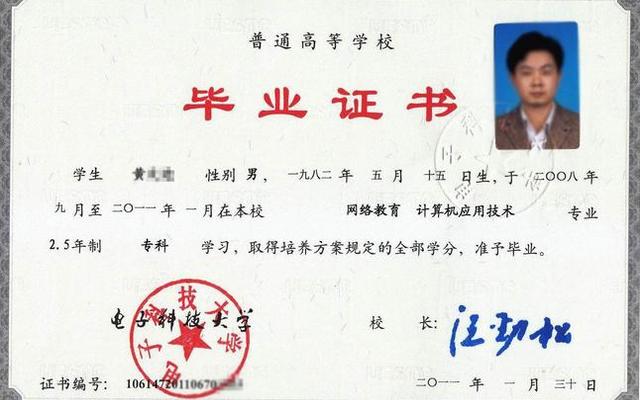 普通高等学校
毕业证书
学生 黄 性别 男，一九八二年 五 月 十五 日生，于 二〇〇八年
九 月至 二〇一一年 一 月在本校 网络教育 计算机应用技术 专业
2.5年制 专科 学习，取得培养方案规定的全部学分，准予毕业。
电子科技大学 校 长：汪劲松
电子科技大学
证书编号：10614720110670 二〇一一年 一 月 三十 日